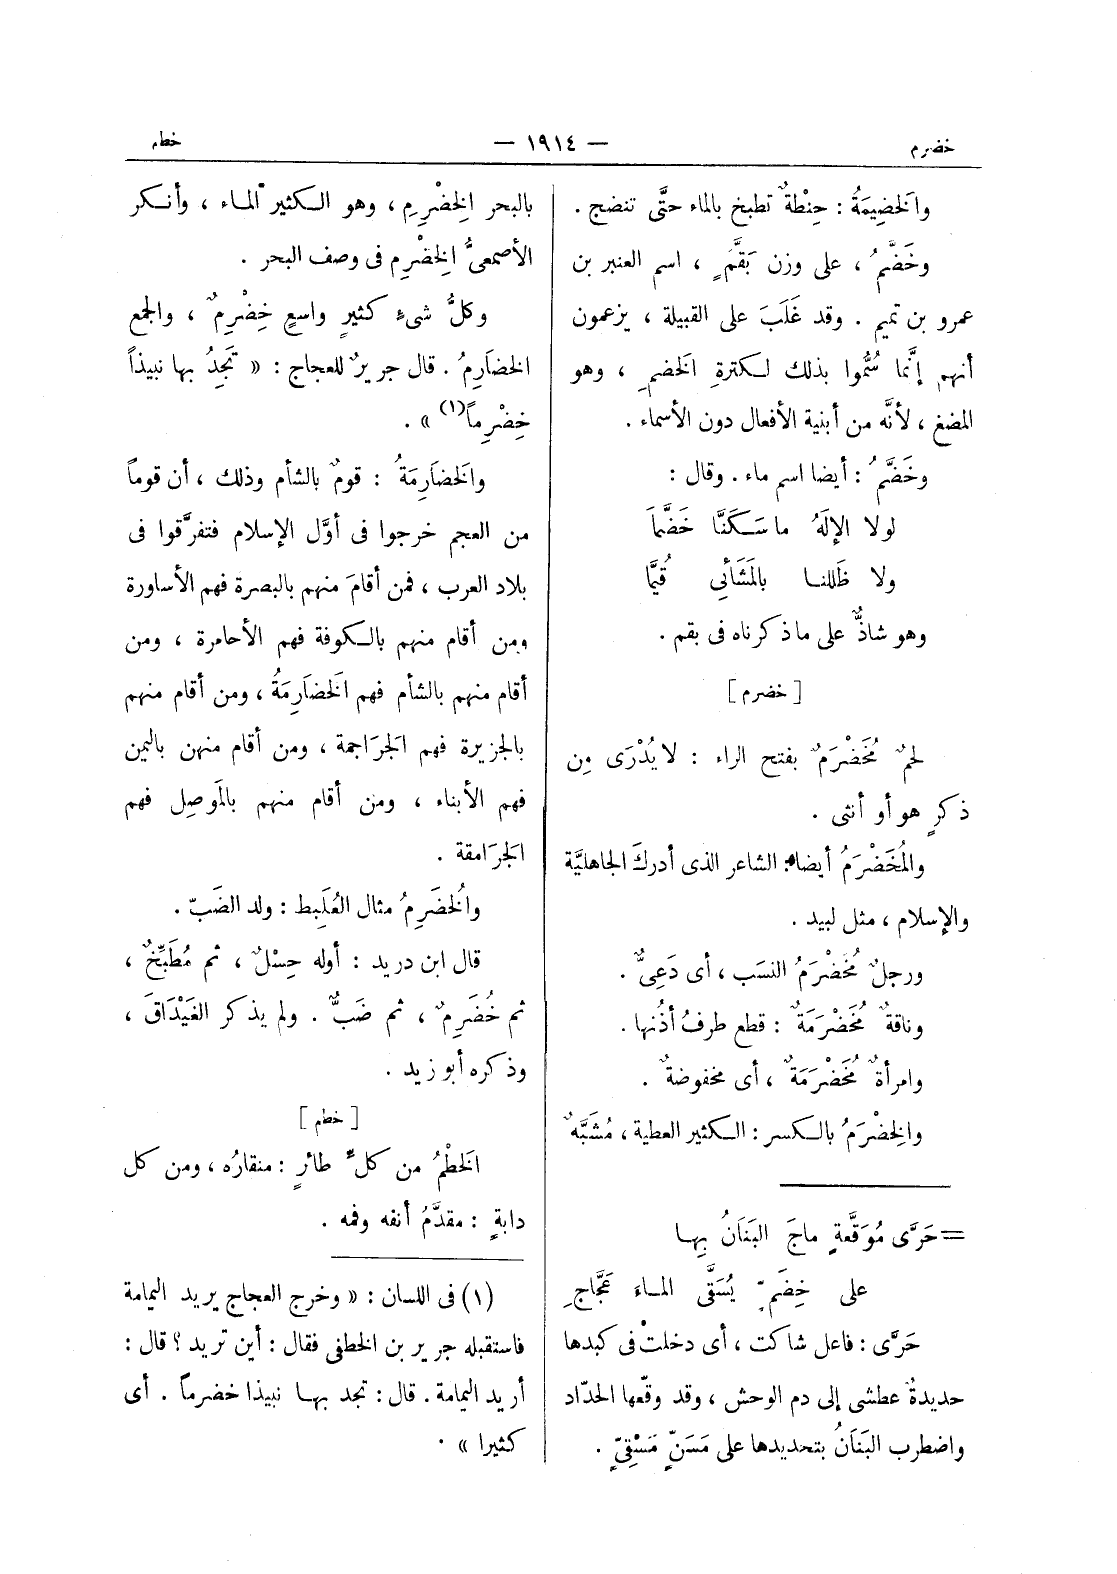 خضرم
— ١٩١٤ —
خطم
والخَضِيمَةُ : حِنْطةٌ تطبخ بالماء حتَّى تنضج .
وخَضَّمُ ، على وزن بَقَّمٍ ، اسم العنبر بن
عمرو بن تميم . وقد غَلَبَ على القبيلة ، يزعمون
أنهم إنَّما سُمُّوا بذلك لكثرةِ الخضمِ ، وهو
المضغ ، لأنَّه من أبنية الأفعال دون الأسماء .
وخَضَّمُ : أيضا اسم ماء . وقال :
لولا الإلَهُ ما سَكَنَّا خَضَّمَا
ولا ظَلِلنا بالمَشَائِى قُيَّمَا
وهو شاذٌّ على ما ذكرناه فى بقم .
[ خضرم ]
لحمٌ مُخَضْرَمٌ بفتح الراء : لا يُدْرَى مِن
ذكرٍ هو أو أنثى .
والمُخَضْرَمُ أيضا : الشاعر الذى أدركَ الجاهليَّة
والإسلام ، مثل لبيد .
ورجلٌ مُخَضْرَمُ النسَب ، أى دَعِىٌّ .
وناقةٌ مُخَضْرَمَةٌ : قطع طرفُ أذُنها .
وامرأةٌ مُخَضْرَمَةٌ ، أى مخفوضةٌ .
والخِضْرَمُ بالكسر : الكثير العطية ، مُشَبَّهٌ
= حَرَّى مُوَقَّعةٍ ماجَ البَنَانُ بِها
على خِضَمٍّ يُسَقَّى الماءَ عَجَّاجِ
حَرَّى : فاعل شاكت ، أى دخلتْ فى كبدها
حديدةٌ عطشى إلى دم الوحش ، وقد وقّعها الحدّاد
واضطرب البَنَانُ بتحديدها على مَسَنٍّ مَسْقِىٍّ .
بالبحر الخِضْرِمِ ، وهو الكثير الماء ، وأنكر
الأصمعىُّ الخِضْرِم فى وصف البحر .
وكلُّ شىءٍ كثيرٍ واسعٍ خِضْرِمٌ ، والجمع
الخضَارِمُ . قال جريرٌ للعجاج : « تَجَِدُ بها نبيذاً
خِضْرِماً(١) » .
والخَضَارِمَةُ : قومٌ بالشأم وذلك ، أن قوماً
من العجم خرجوا فى أوَّل الإسلام فتفرَّقوا فى
بلاد العرب ، فمن أقامَ منهم بالبصرة فهم الأساورة
ومن أقام منهم بالكوفة فهم الأحامرة ، ومن
أقام منهم بالشأم فهم الخَضَارِمَةُ ، ومن أقام منهم
بالجزيرة فهم الجرَاجمة ، ومن أقام منهن باليمن
فهم الأبناء ، ومن أقام منهم بالمَوصِل فهم
الجرَامقة .
والخُضَرِمُ مثال العُلَبِط : ولد الضَبّ .
قال ابن دريد : أوله حِسْلٌ ، ثم مُطَبِّخٌ ،
ثم خُضَرِمٌ ، ثم ضَبٌّ . ولم يذكر الغَيْدَاقَ ،
وذكره أبو زيد .
[ خطم ]
الخَطْمُ من كلّ طائرٍ : منقارُه ، ومن كل
دابةٍ : مقدَّمُ أنفه وفمه .
(١) فى اللسان : « وخرج العجاج يريد اليمامة
فاستقبله جرير بن الخطفى فقال : أين تريد ؟ قال :
أريد اليمامة . قال : تجد بها نبيذا خضرماً . أى
كثيرا » .